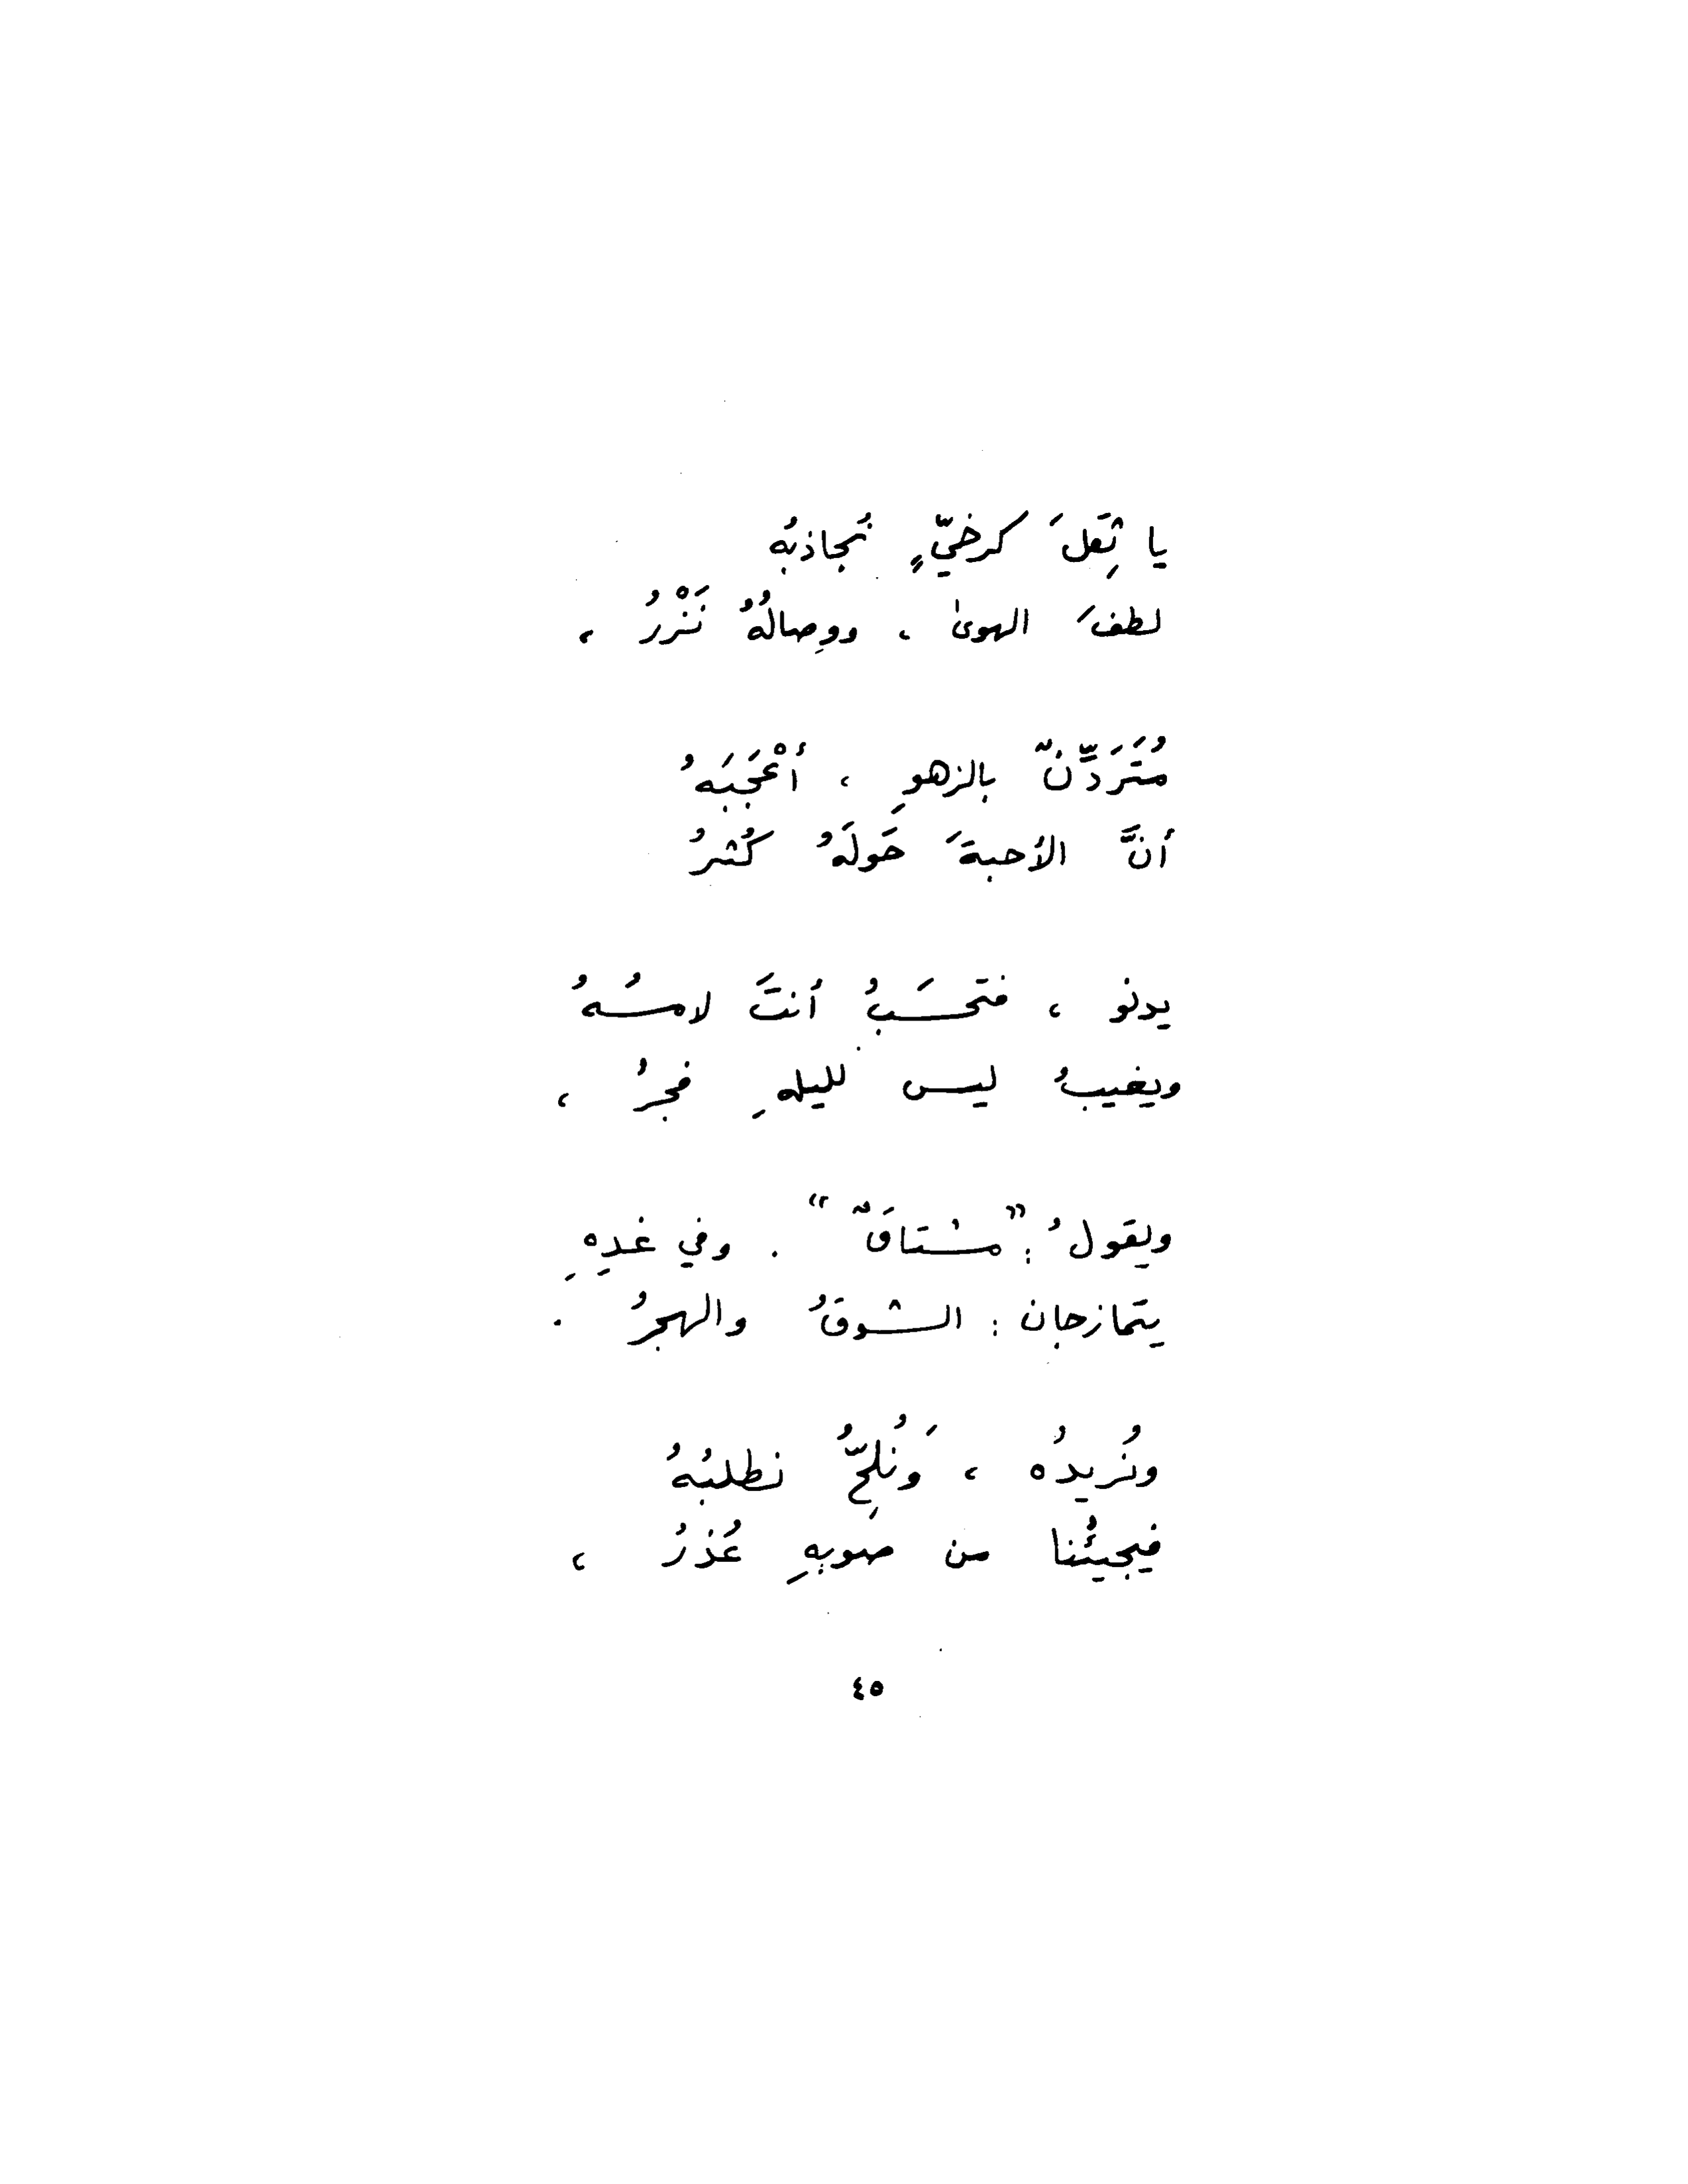 يا ثِقَلَ كرخيٍّ نُجاذبُه
لطفَ الهوىٰ ، ووِصالُهُ نَزْرُ ،
مُتَرَدِّنٌ بالزهوِ ، أعْجَبَهُ
أنَّ الأحبةَ حَولَهُ كُثرُ
يدنو ، فتحسَبُ أنتَ لامسُهُ
ويغيبُ ليس لليلهِ فجرُ ،
ويقولُ : " مشتاقٌ " . وفي غدِهِ
يتمازجان : الشوقُ والهجرُ .
ونُريدُه ، وَنُلِحُّ نطلبُهُ
فيجيئُنا من صَوبِهِ عُذرُ ،
٤٥